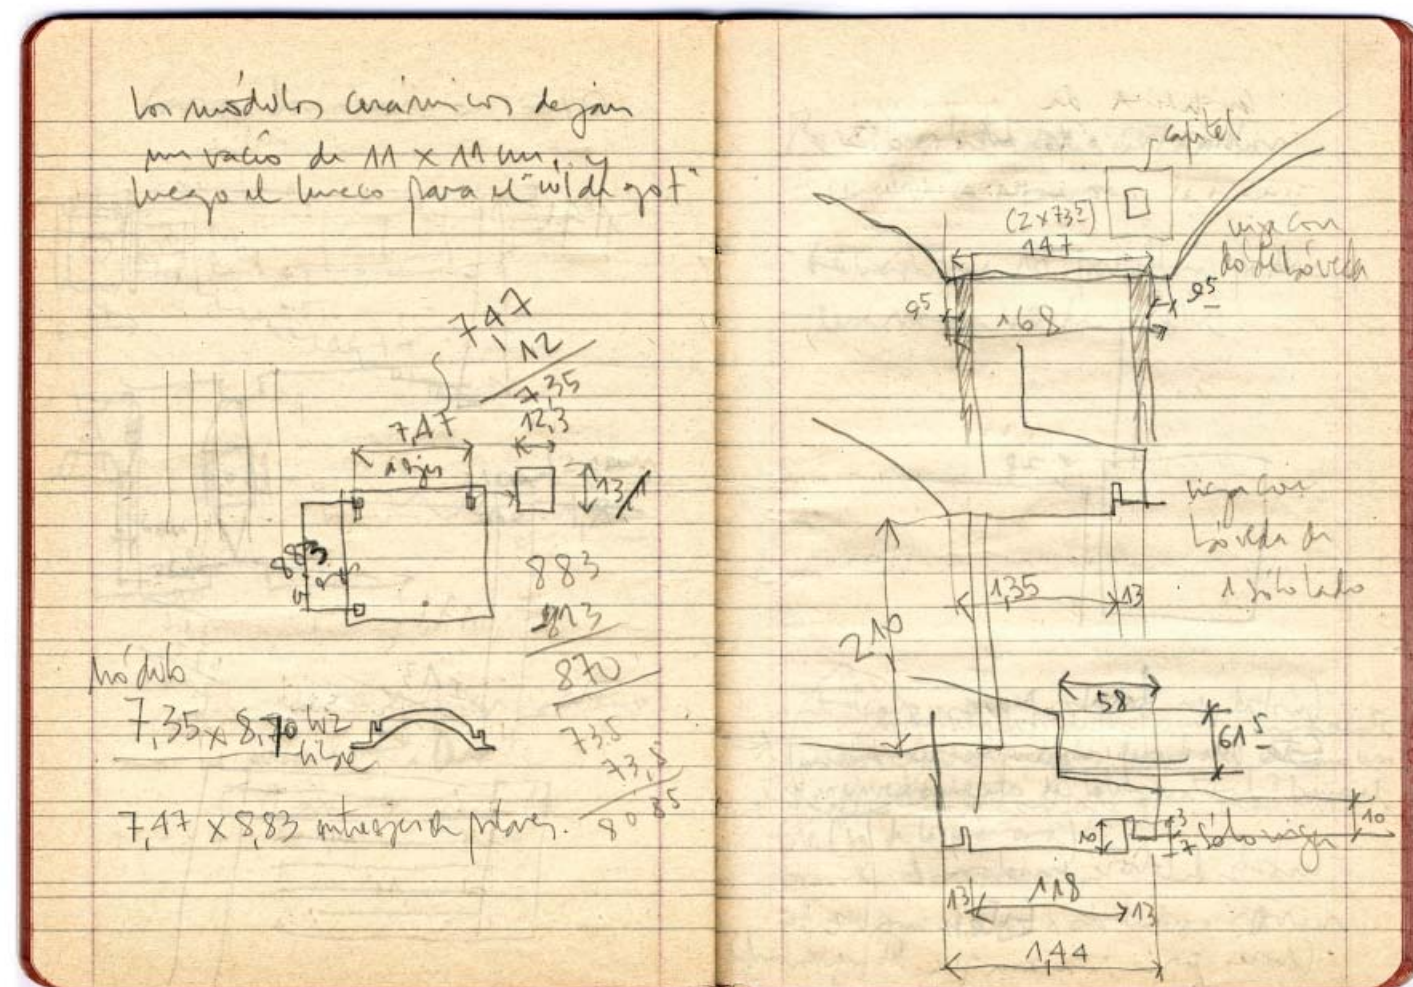 los módulos cerámicos dejan
un vacío de 11 x 11 cm, y
luego el hueco para el "
7,47
12
7,35
12,3
7,47
a ejes
13
883
883
13
870
módulo
7,35 x 8,70 luz
libre
73,5
73,5
7,47 x 8,83 entre ejes de pilares.
capitel
(2 x 73⁵)
147
viga con
dos de bóveda
9⁵
9⁵
168
viga con
bóveda de
1 sólo lado
1,35
13
210
58
61⁵
10
3
7
sólo viga
10
13
118
13
1,44